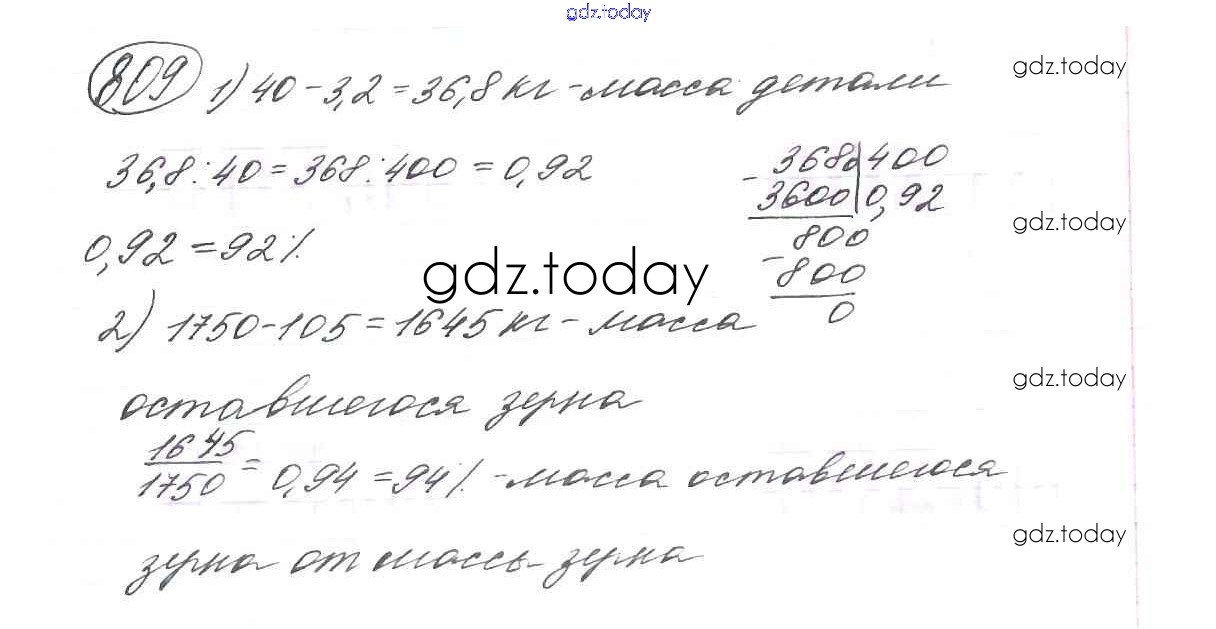 gdz.today
809 1) 40 - 3,2 = 36,8 кг - масса детали
gdz.today
36,8 : 40 = 368 : 400 = 0,92
- 3680 | 400
3600 | 0,92
800
- 800
0
gdz.today
0,92 = 92 %
gdz.today
2) 1750 - 105 = 1645 кг - масса
gdz.today
оставшегося зерна
1645
1750 = 0,94 = 94 % - масса оставшегося
gdz.today
зерна от массы зерна